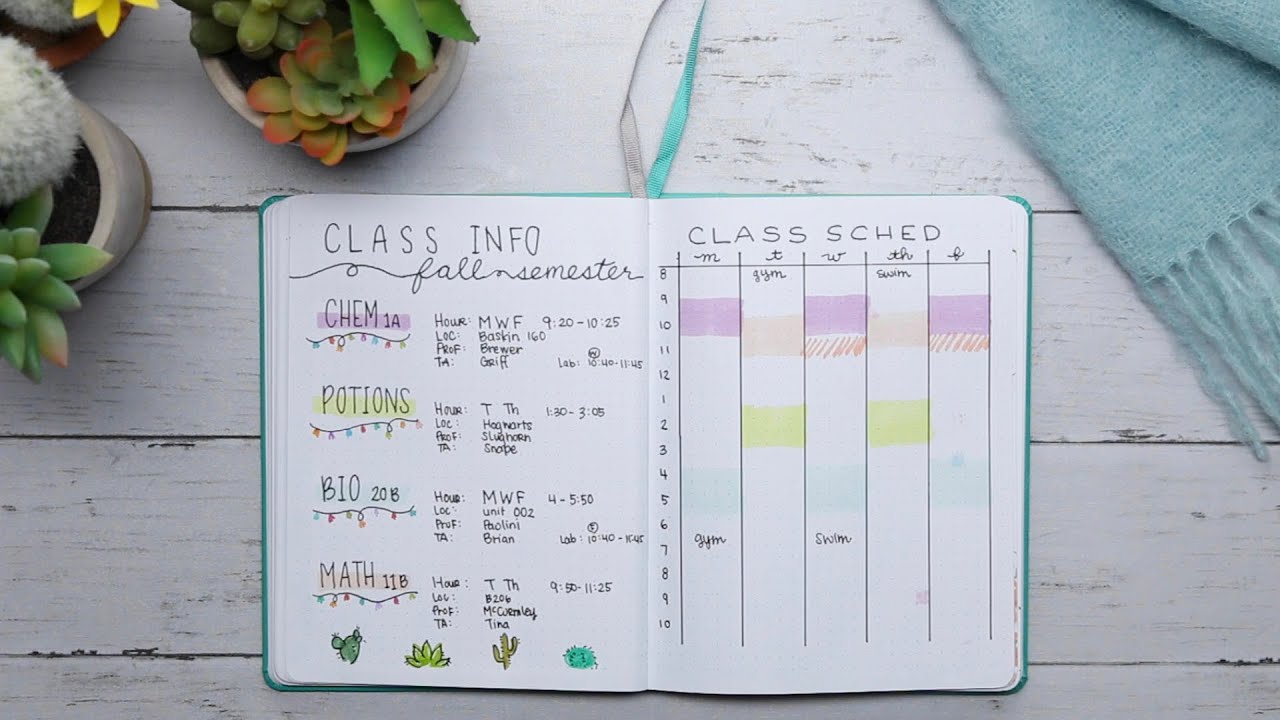 CLASS INFO
fall semester
CHEM 1A
HOUR: MWF 9:20-10:25
LOC: Baskin 160
PROF: Brewer
TA: Griff Lab: 10:40-11:45
W
POTIONS
HOUR: T Th 1:30-3:05
LOC: Hogwarts
PROF: Slughorn
TA: Snape
BIO 20B
HOUR: MWF 4-5:50
LOC: unit 002
PROF: Paolini
TA: Brian Lab: 10:40-11:45
F
MATH 11B
HOUR: T Th 9:50-11:25
LOC: B206
PROF:
TA: Tina
CLASS SCHED
m t w th f
8 gym swim
9
10
11
12
1
2
3
4
5
6
7 gym swim
8
9
10